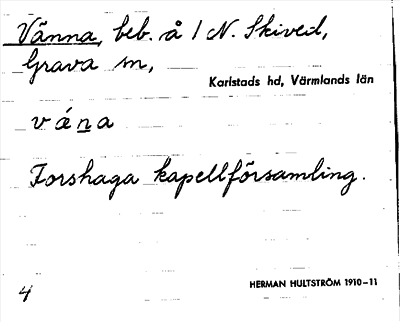 Vänna, beb. å 1 N. Skived,
Grava sn,
Karlstads hd, Värmlands län
vǽna
Forshaga kapellförsamling.
4
HERMAN HULTSTRÖM 1910-11